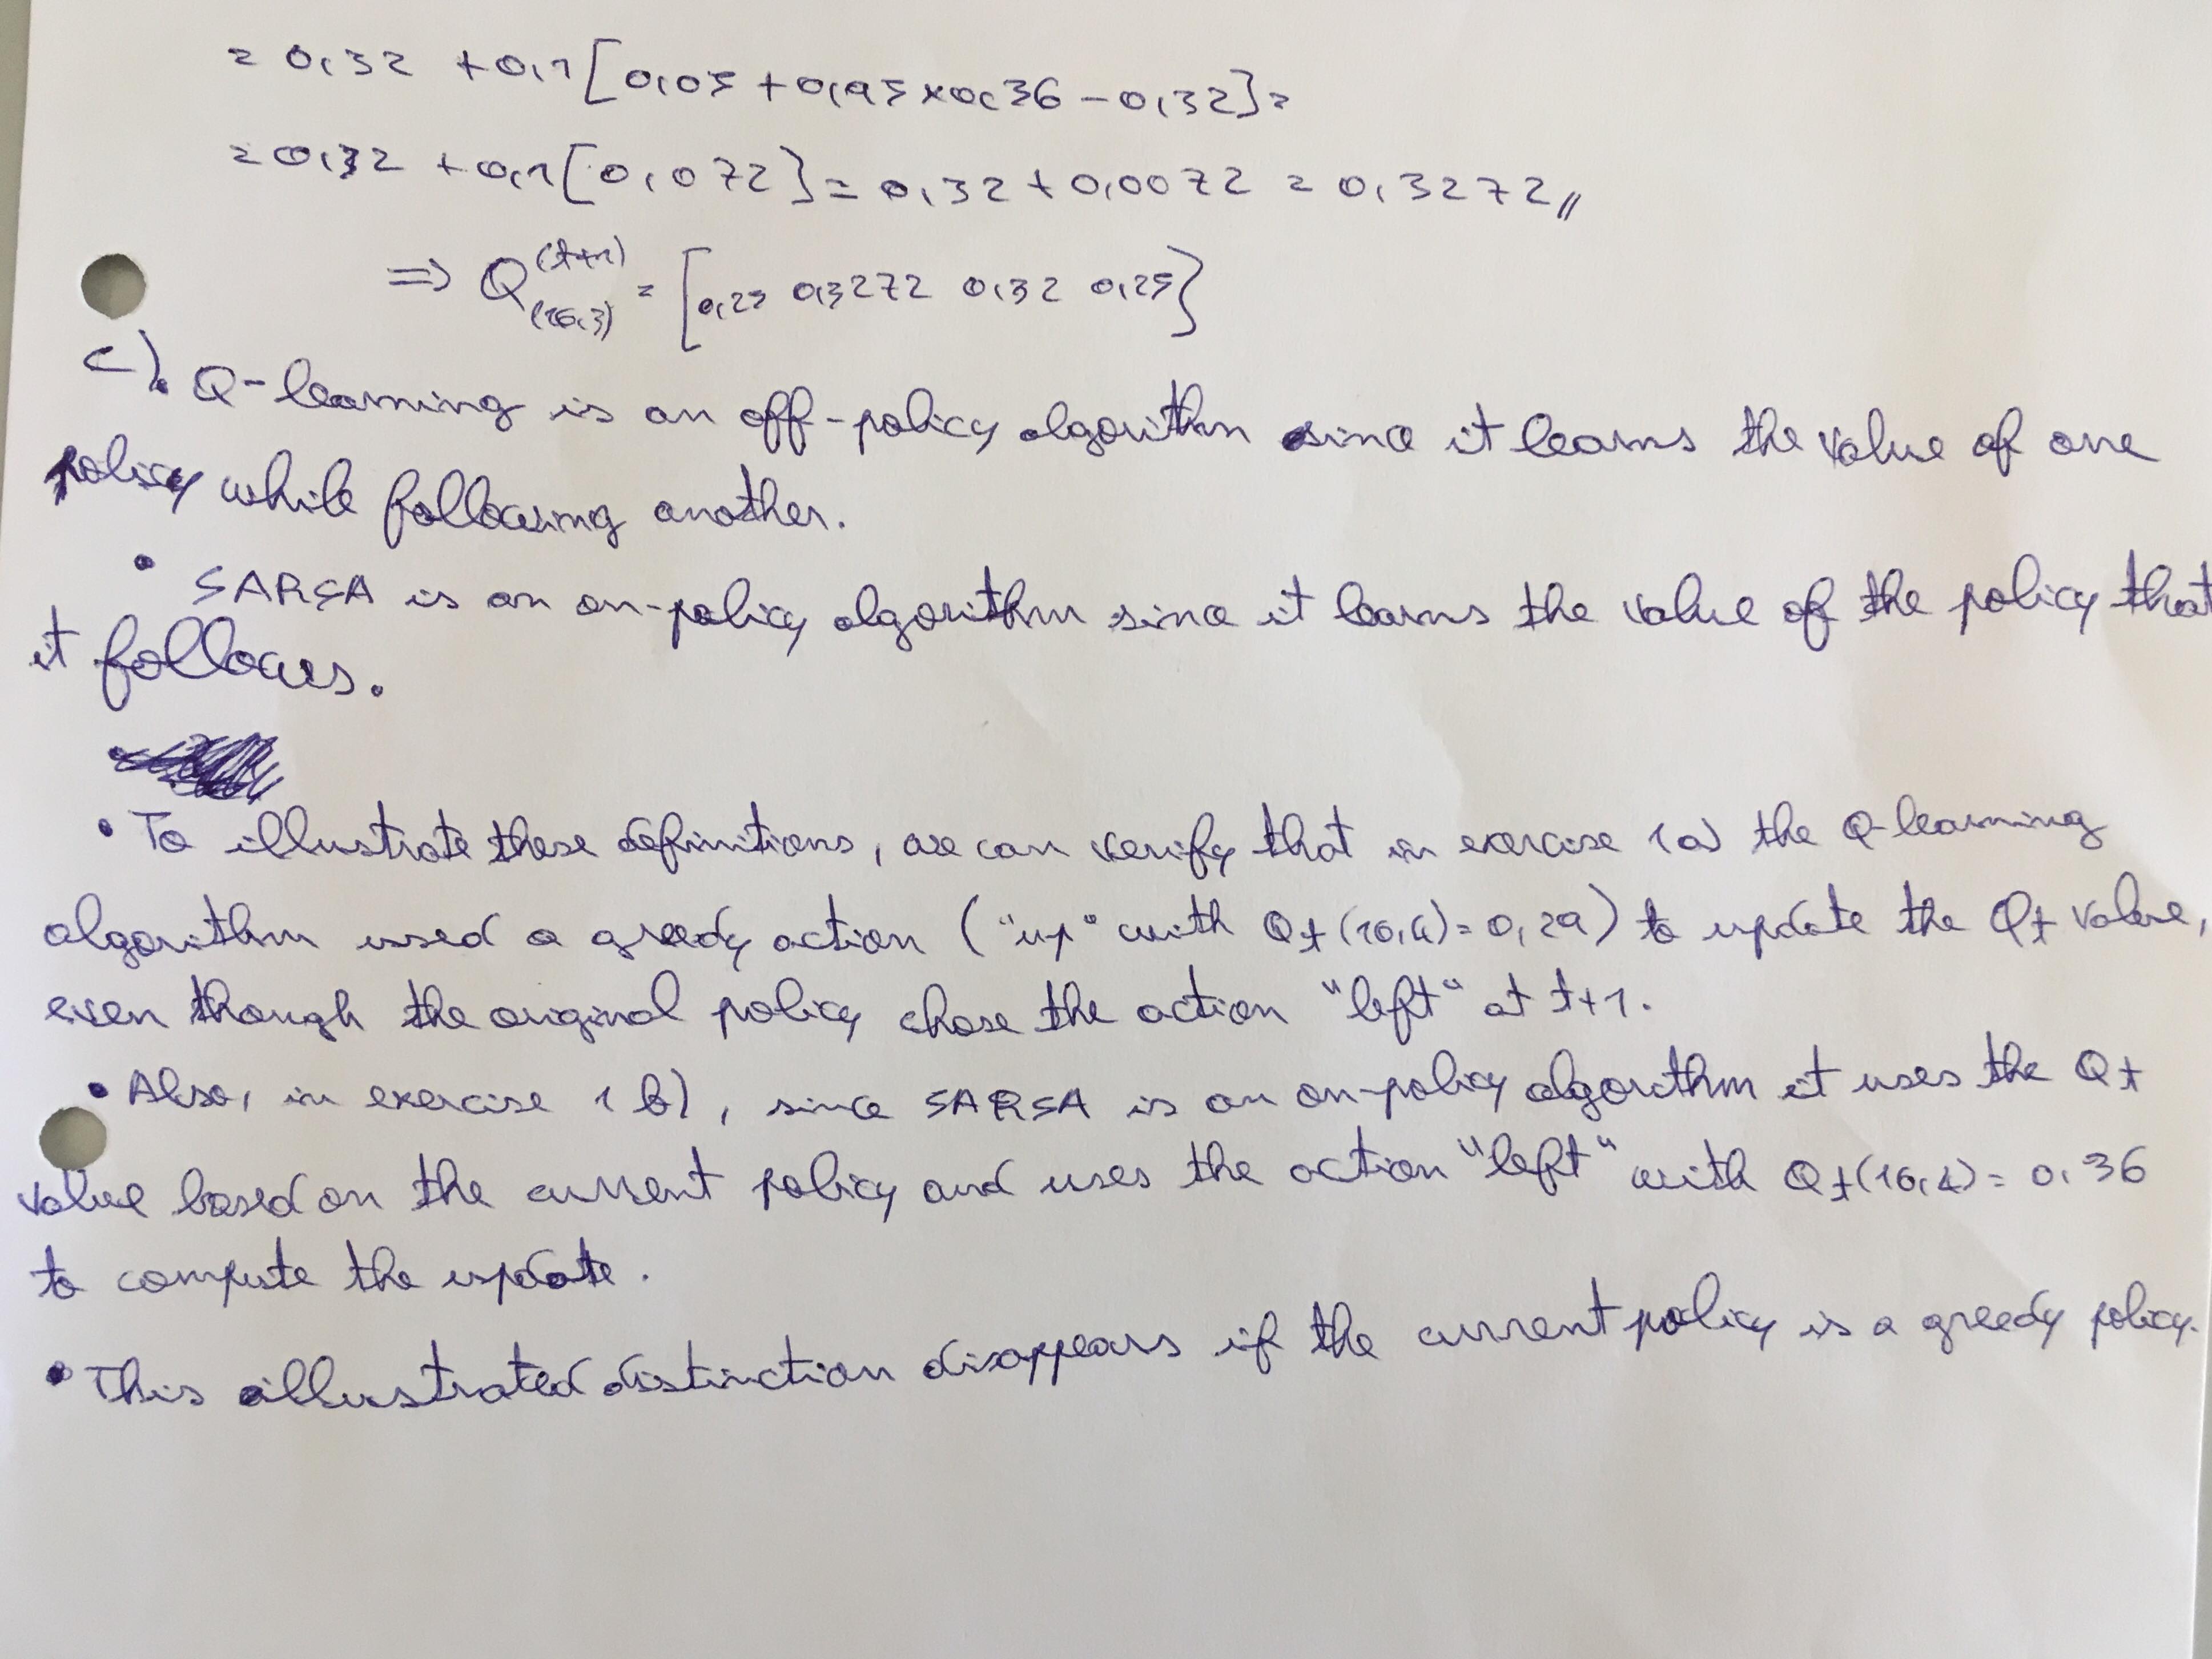 = 0,32 + 0,1 [0,05 + 0,95 × 0,36 - 0,32] =
= 0,32 + 0,1 [0,072] = 0,32 + 0,0072 = 0,3272 //
⇒ Q^(t+1)_(16,3) = [0,29 0,3272 0,32 0,29]
c). Q-learning is an off-policy algorithm since it learns the value of one
policy while following another.
• SARSA is an on-policy algorithm since it learns the value of the policy that
it follows.
• To illustrate these definitions, we can verify that in exercise 1a) the Q-learning
algorithm used a greedy action ("up" with Qt(16,4) = 0,29) to update the Qt value,
even though the original policy chose the action "left" at t+1.
• Also, in exercise 1b), since SARSA is an on-policy algorithm it uses the Qt
value based on the current policy and uses the action "left" with Qt(16,4) = 0,36
to compute the update.
• This illustrated distinction disappears if the current policy is a greedy policy.